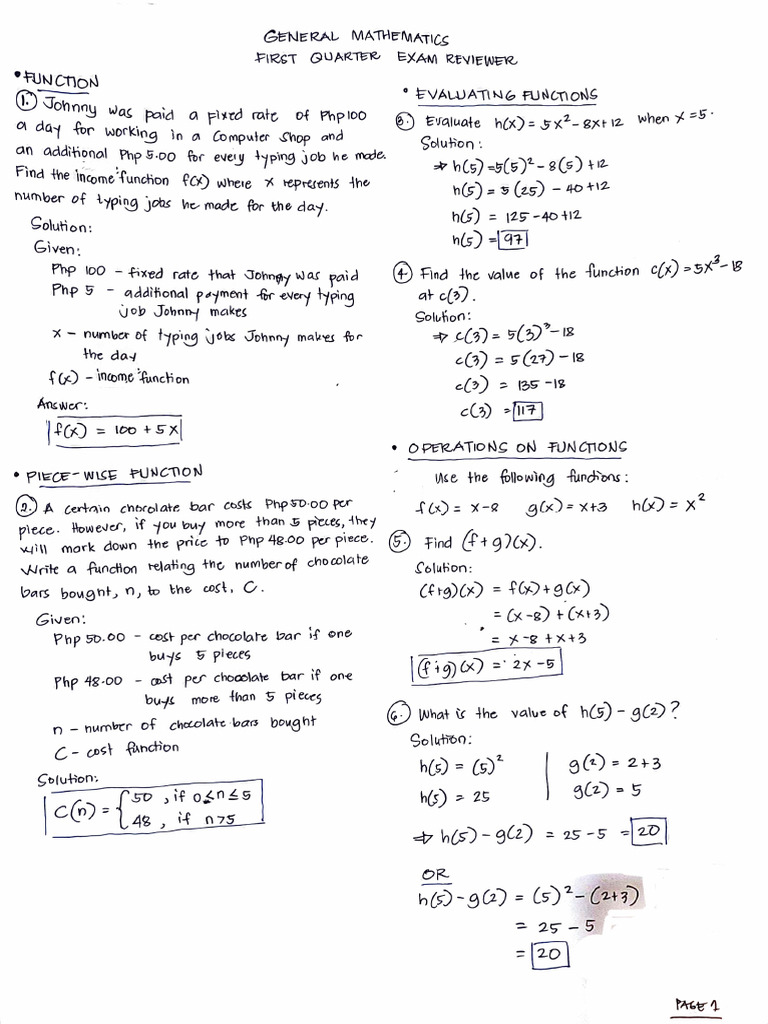 GENERAL MATHEMATICS
FIRST QUARTER EXAM REVIEWER
• FUNCTION
1. Johnny was paid a fixed rate of Php100
a day for working in a Computer Shop and
an additional Php 5.00 for every typing job he made.
Find the income function f(x) where x represents the
number of typing jobs he made for the day.
Solution:
Given:
Php 100 – fixed rate that Johnny was paid
Php 5 – additional payment for every typing
job Johnny makes
x – number of typing jobs Johnny makes for
the day
f(x) – income function
Answer:
f(x) = 100 + 5x
• PIECE-WISE FUNCTION
2. A certain chocolate bar costs Php50.00 per
piece. However, if you buy more than 5 pieces, they
will mark down the price to Php 48.00 per piece.
Write a function relating the number of chocolate
bars bought, n, to the cost, C.
Given:
Php 50.00 – cost per chocolate bar if one
buys 5 pieces
Php 48.00 – cost per chocolate bar if one
buys more than 5 pieces
n – number of chocolate bars bought
C – cost function
Solution:
C(n) = { 50 , if 0≤n≤5
48 , if n>5
• EVALUATING FUNCTIONS
3. Evaluate h(x) = 5x² – 8x+12 when x = 5.
Solution:
⇒ h(5) = 5(5)² – 8(5) + 12
h(5) = 5(25) – 40 + 12
h(5) = 125 – 40 + 12
h(5) = 97
4. Find the value of the function c(x) = 5x³ – 18
at c(3).
Solution:
⇒ c(3) = 5(3)³ – 18
c(3) = 5(27) – 18
c(3) = 135 – 18
c(3) = 117
• OPERATIONS ON FUNCTIONS
Use the following functions:
f(x) = x – 8 g(x) = x+3 h(x) = x²
5. Find (f+g)(x).
Solution:
(f+g)(x) = f(x) + g(x)
= (x–8) + (x+3)
= x – 8 + x + 3
(f+g)(x) = 2x – 5
6. What is the value of h(5) – g(2)?
Solution:
h(5) = (5)² | g(2) = 2+3
h(5) = 25 | g(2) = 5
⇒ h(5) – g(2) = 25 – 5 = 20
OR
h(5) – g(2) = (5)² – (2+3)
= 25 – 5
= 20
PAGE 1